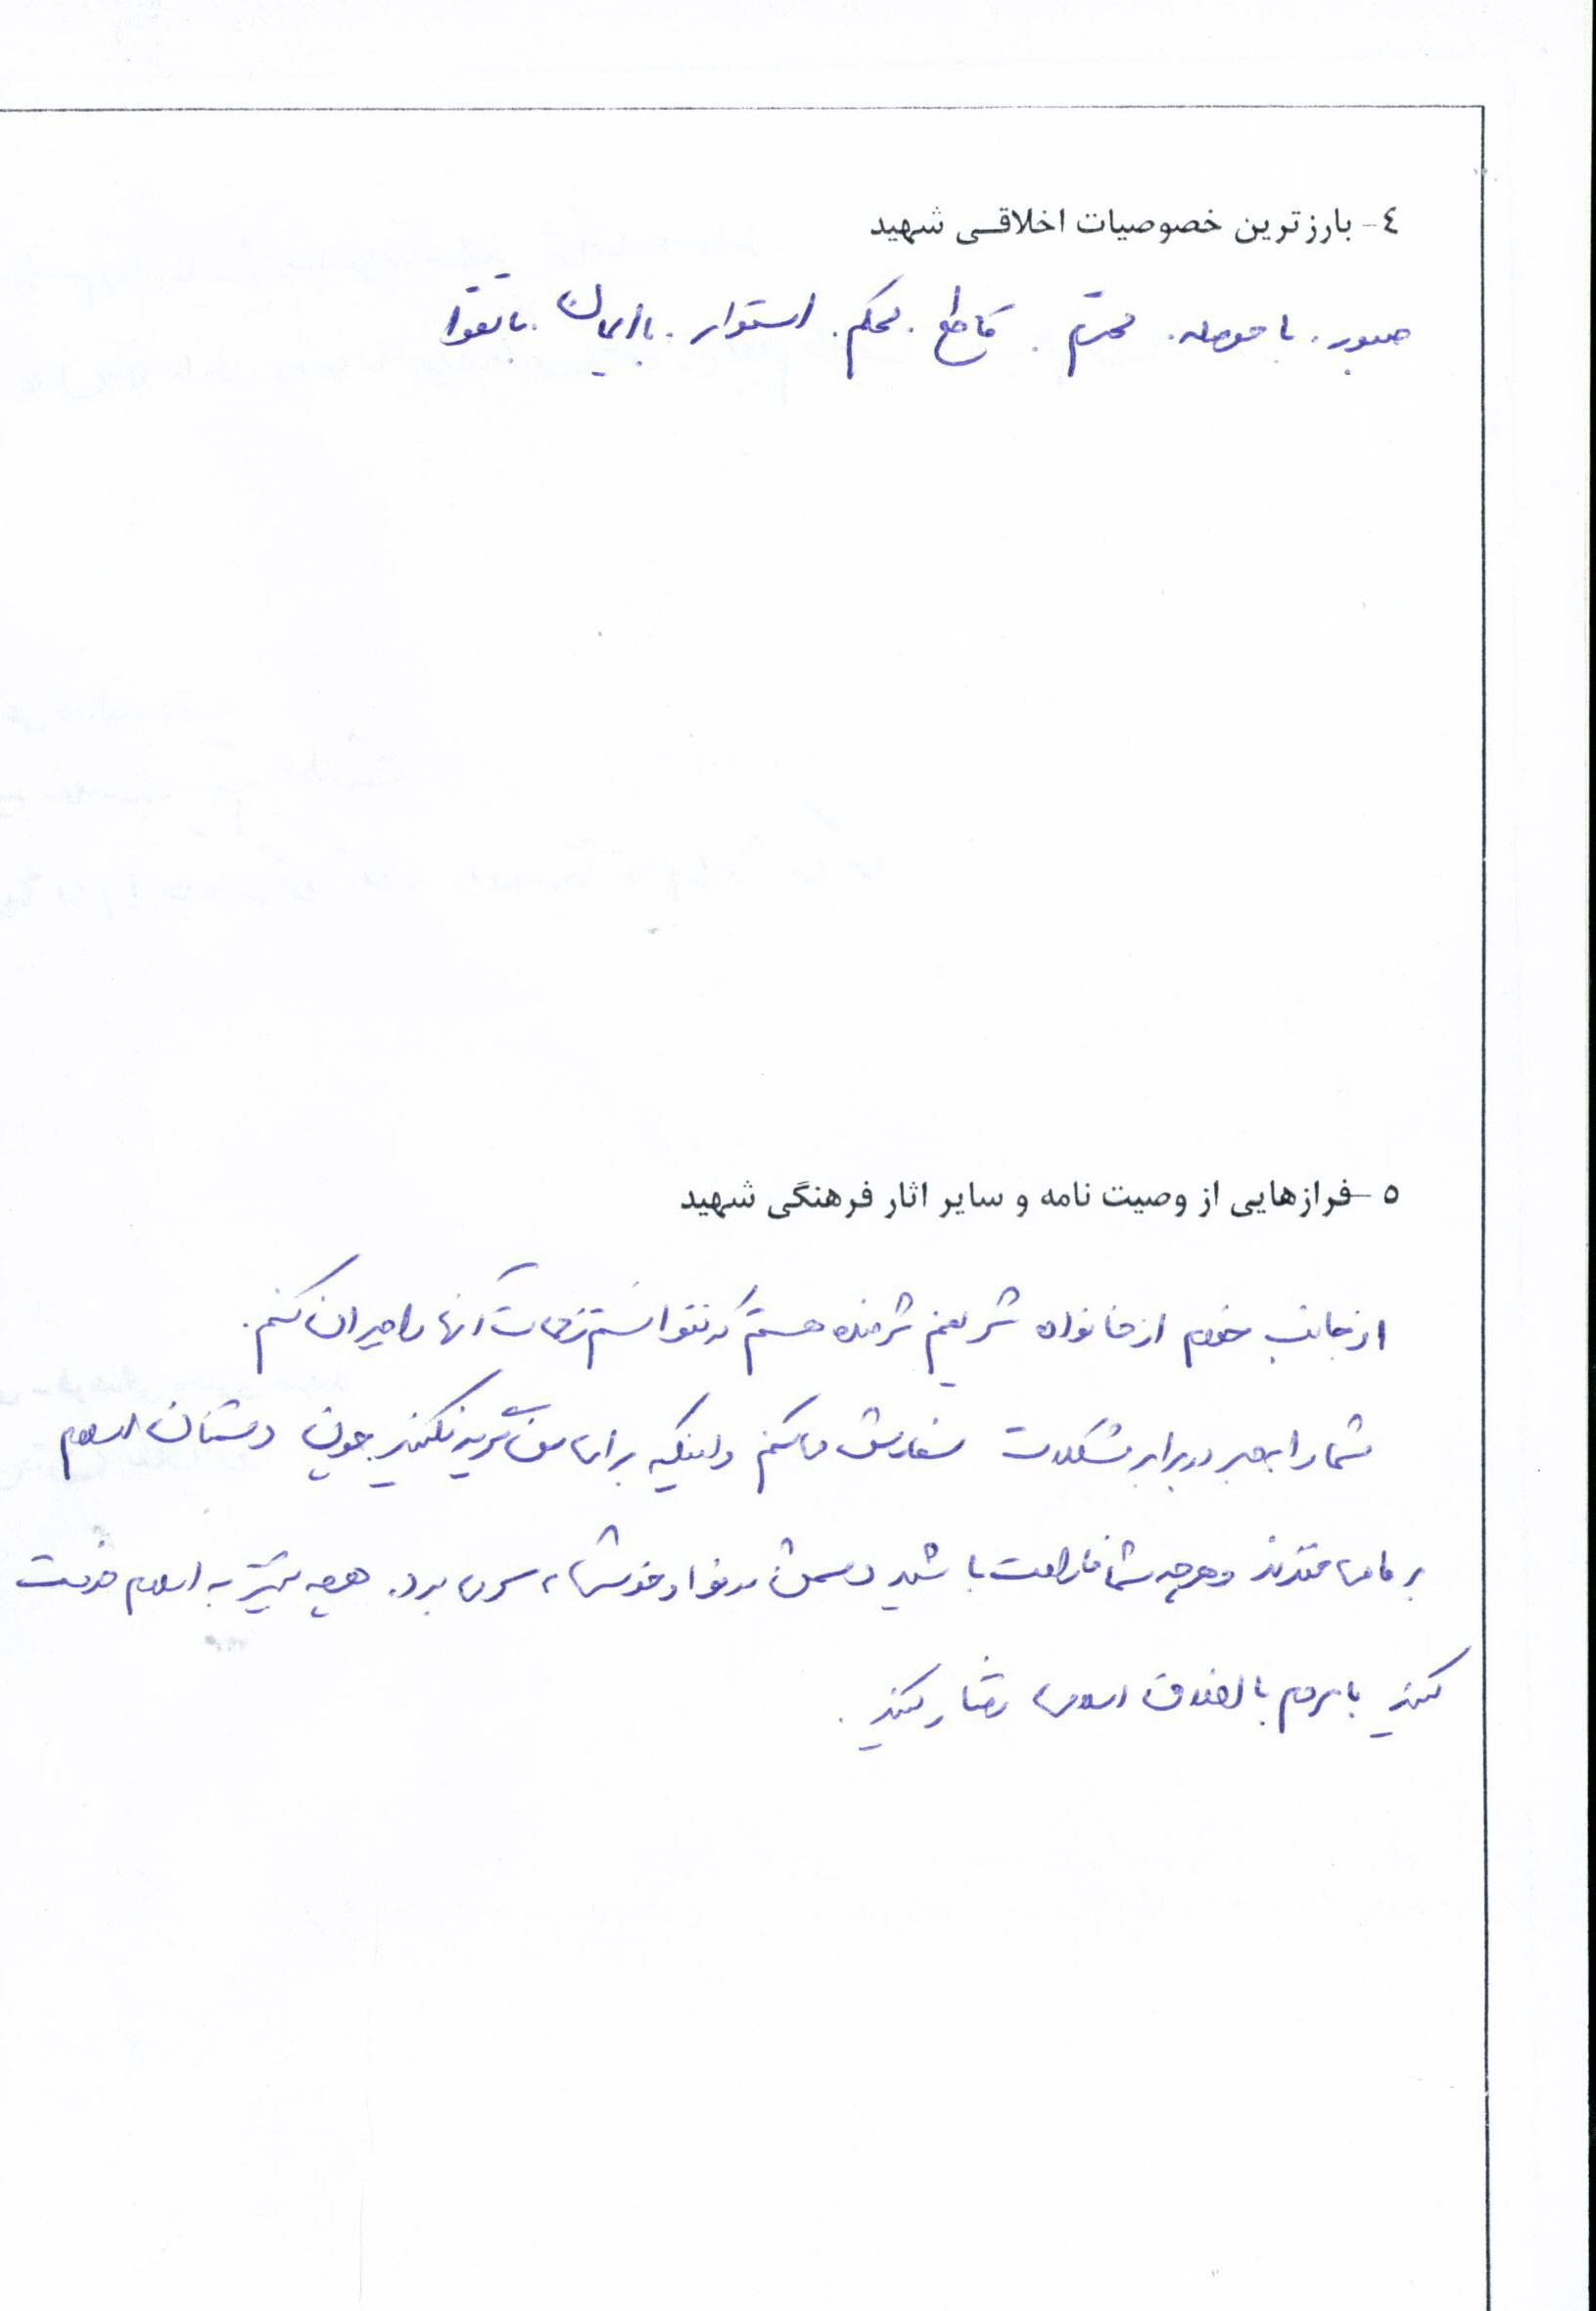 ٤- بارزترین خصوصیات اخلاقی شهید
صبور. با حوصله. محترم. قاطع. محکم. استوار. با ایمان. با تقوا
٥- فرازهایی از وصیت نامه و سایر اثار فرهنگی شهید
از جانب خودم از خانواده شریفم شرمنده هستم که نتوانستم زحمات آنها را جبران کنم.
شما را به صبر در برابر مشکلات سفارش می کنم و اینکه برای من گریه نکنید چون دشمنان اسلام
بر ما می خندند و هر چه شما ناراحت باشید دشمن در خواب خوش به سر می برد. هر چه بیشتر به اسلام خدمت
کنید با مردم با اخلاق اسلامی رفتار کنید.